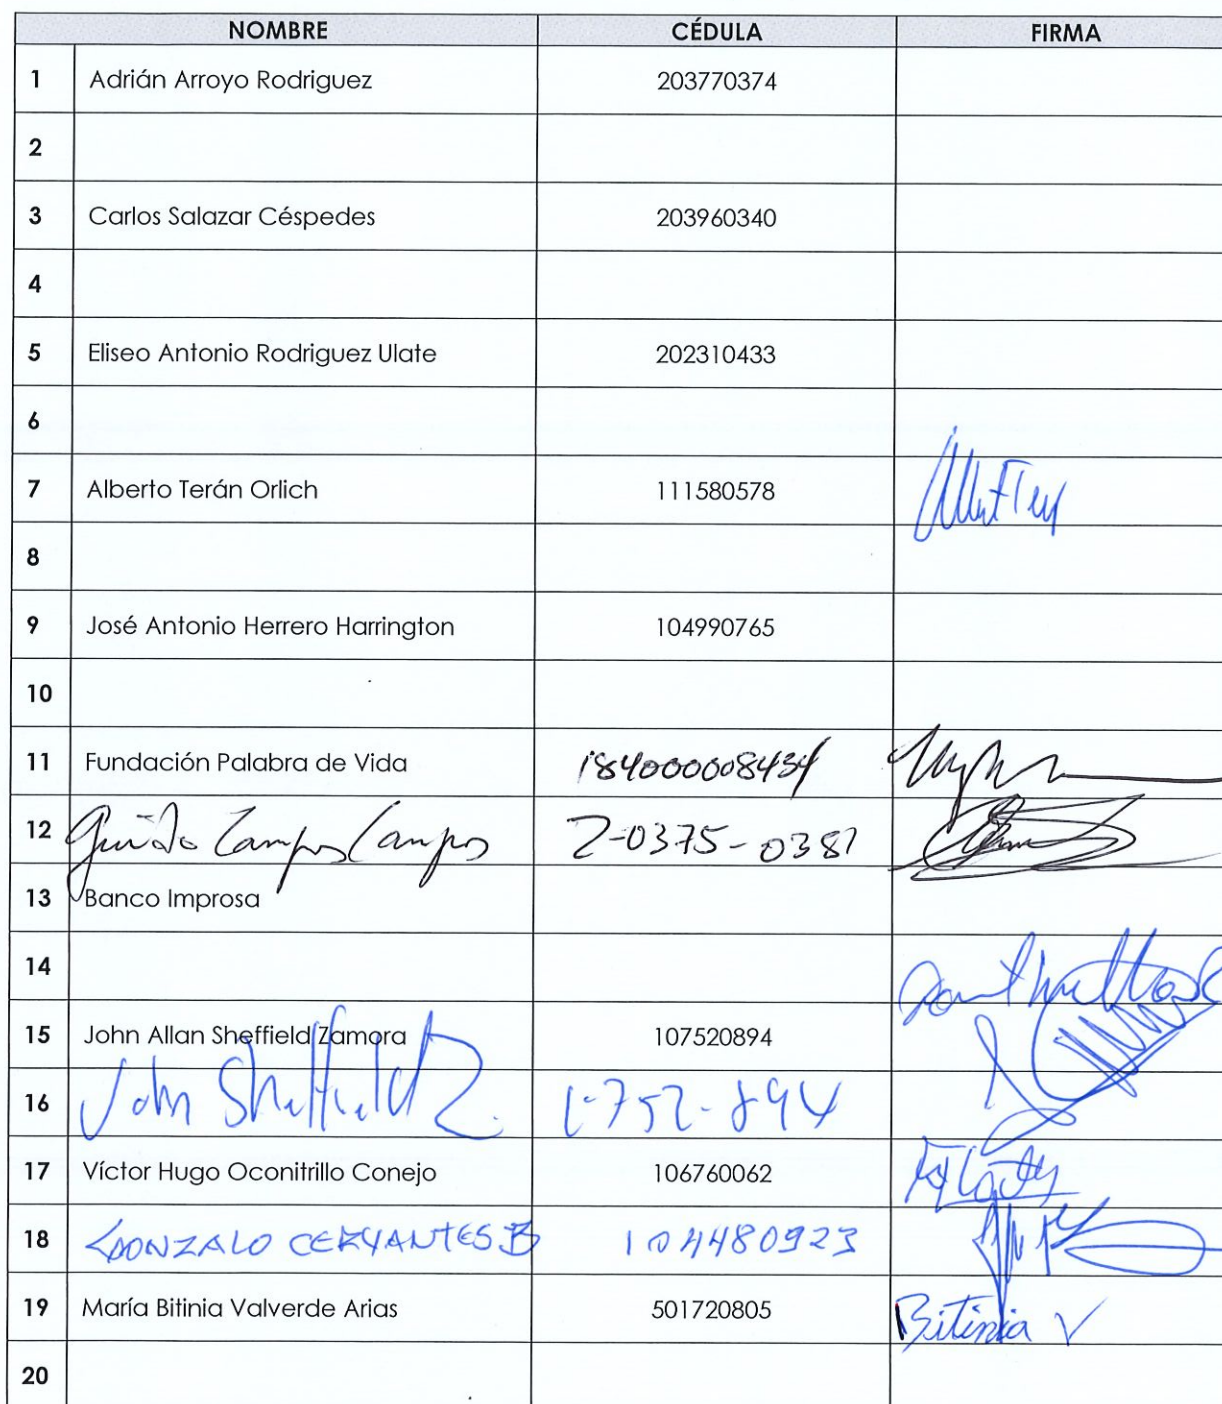 NOMBRE CÉDULA FIRMA
1 Adrián Arroyo Rodriguez 203770374
2
3 Carlos Salazar Céspedes 203960340
4
5 Eliseo Antonio Rodriguez Ulate 202310433
6
7 Alberto Terán Orlich 111580578
8
9 José Antonio Herrero Harrington 104990765
10
11 Fundación Palabra de Vida 184000008434
12 Guido Campos Campos 2-0375-0381
13 Banco Improsa
14
15 John Allan Sheffield Zamora 107520894
16 John Sheffield Z. 1-752-894
17 Víctor Hugo Oconitrillo Conejo 106760062
18 GONZALO CERVANTES B 104480923
19 María Bitinia Valverde Arias 501720805 Bitinia V
20